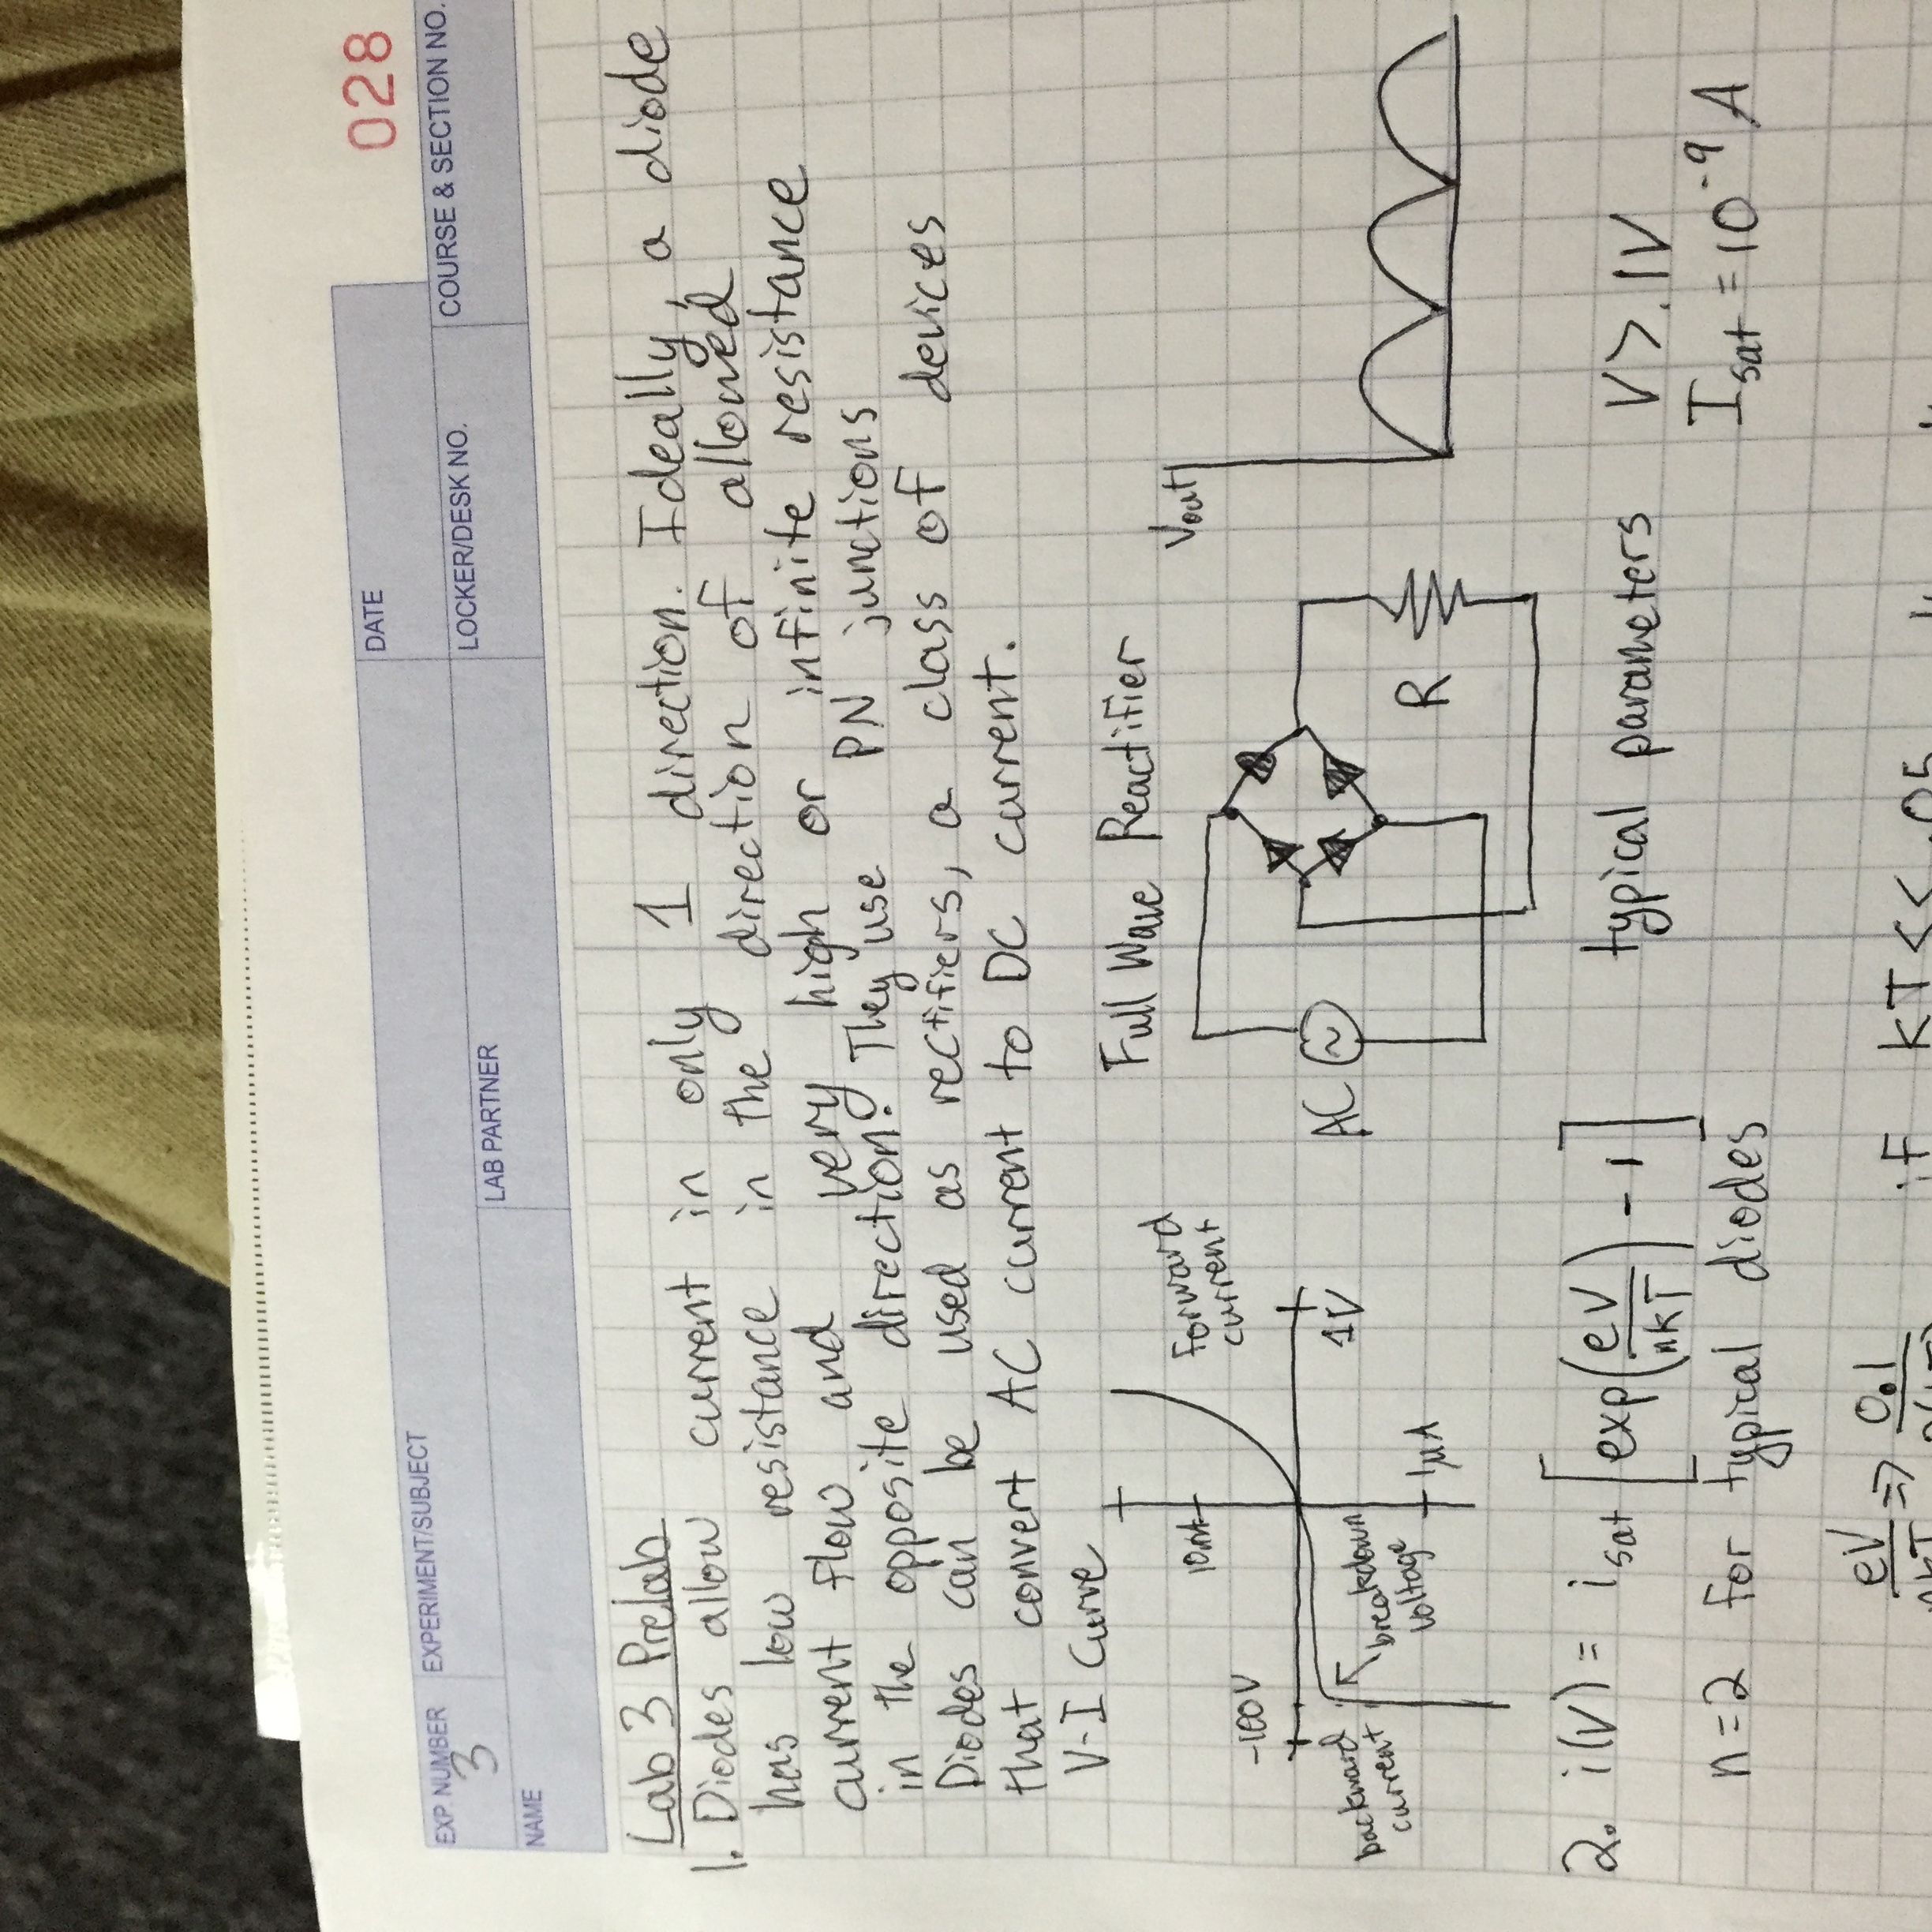 028
EXP. NUMBER
3
EXPERIMENT/SUBJECT
DATE
NAME
LAB PARTNER
LOCKER/DESK NO.
COURSE & SECTION NO.
Lab 3 Prelab
1. Diodes allow current in only 1 direction. Ideally, a diode
has low resistance in the direction of allowed
current flow and very high or infinite resistance
in the opposite direction. They use PN junctions
Diodes can be used as rectifiers, a class of devices
that convert AC current to DC current.
V-I Curve
10mA
forward
current
-100V
1V
backward
current
breakdown
voltage
1μA
Full Wave Reactifier
AC
~
R
Vout
2. i(V) = i_sat [exp(eV/nkT) - 1]
typical parameters V > .1V
I_sat = 10^-9 A
n=2 for typical diodes
eV/nkT => 0.1/ if KT << .05